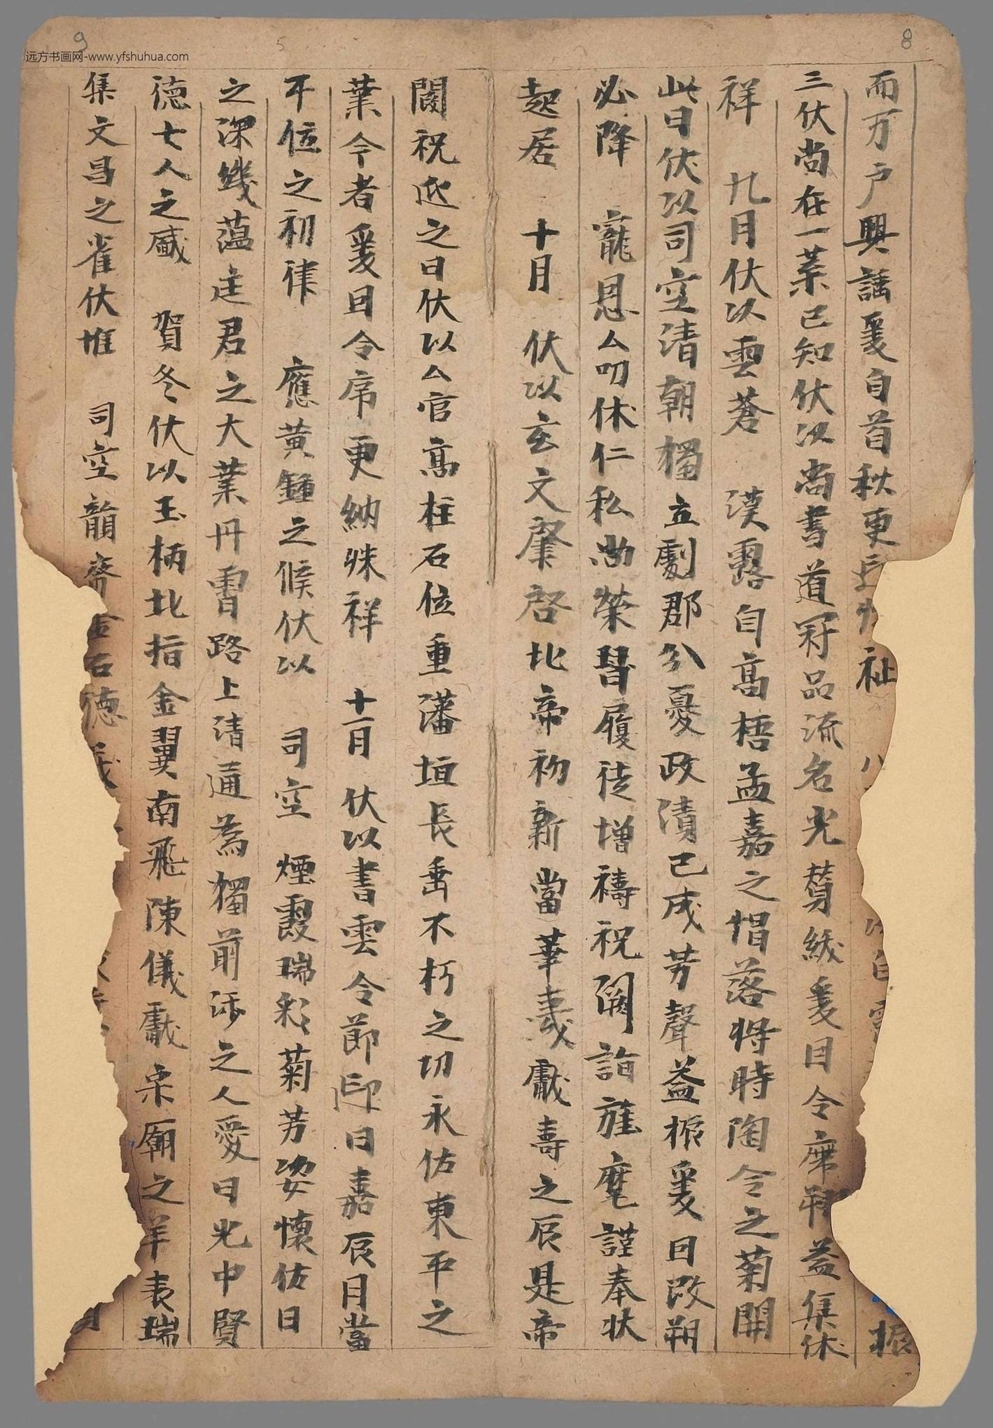 而万户興謡爰自首秋更 祉
三伏尚在一葉已知伏以尚書道冠品流名光蕚紱爰因令 益集休
祥 九月伏以雲蒼 漢露自高梧孟嘉之帽落將時陶令之菊開
此日伏以司空清朝獨立劇郡分憂政漬已成芳聲益振爰因改朔
必降 寵恩厶叨休仁私尚榮 履徒增禱祝闕詣旌麾謹奉狀
起居 十月 伏以玄文肇啓北帝初新當華 獻壽之辰是帝
闕祝延之日伏以厶官高柱石位重藩垣長垂不朽之功永佐東平之
葉今者爰因令序更納殊祥 十一月 伏以書雲令節 日嘉辰月當
不位之初律 應黄鍾之候伏以 司空 煙霞瑞彩菊芳姿懷佐日
之深機蕴 君之大業丹霄路上清通為獨前 之人愛日光中賢
德七人之盛 賀冬伏以玉柄北指金翼南飛陳儀獻 廟之羊表瑞
集文昌之雀伏惟 司空龍 金石德
8
9
5
远方书画网-www.yfshuhua.com